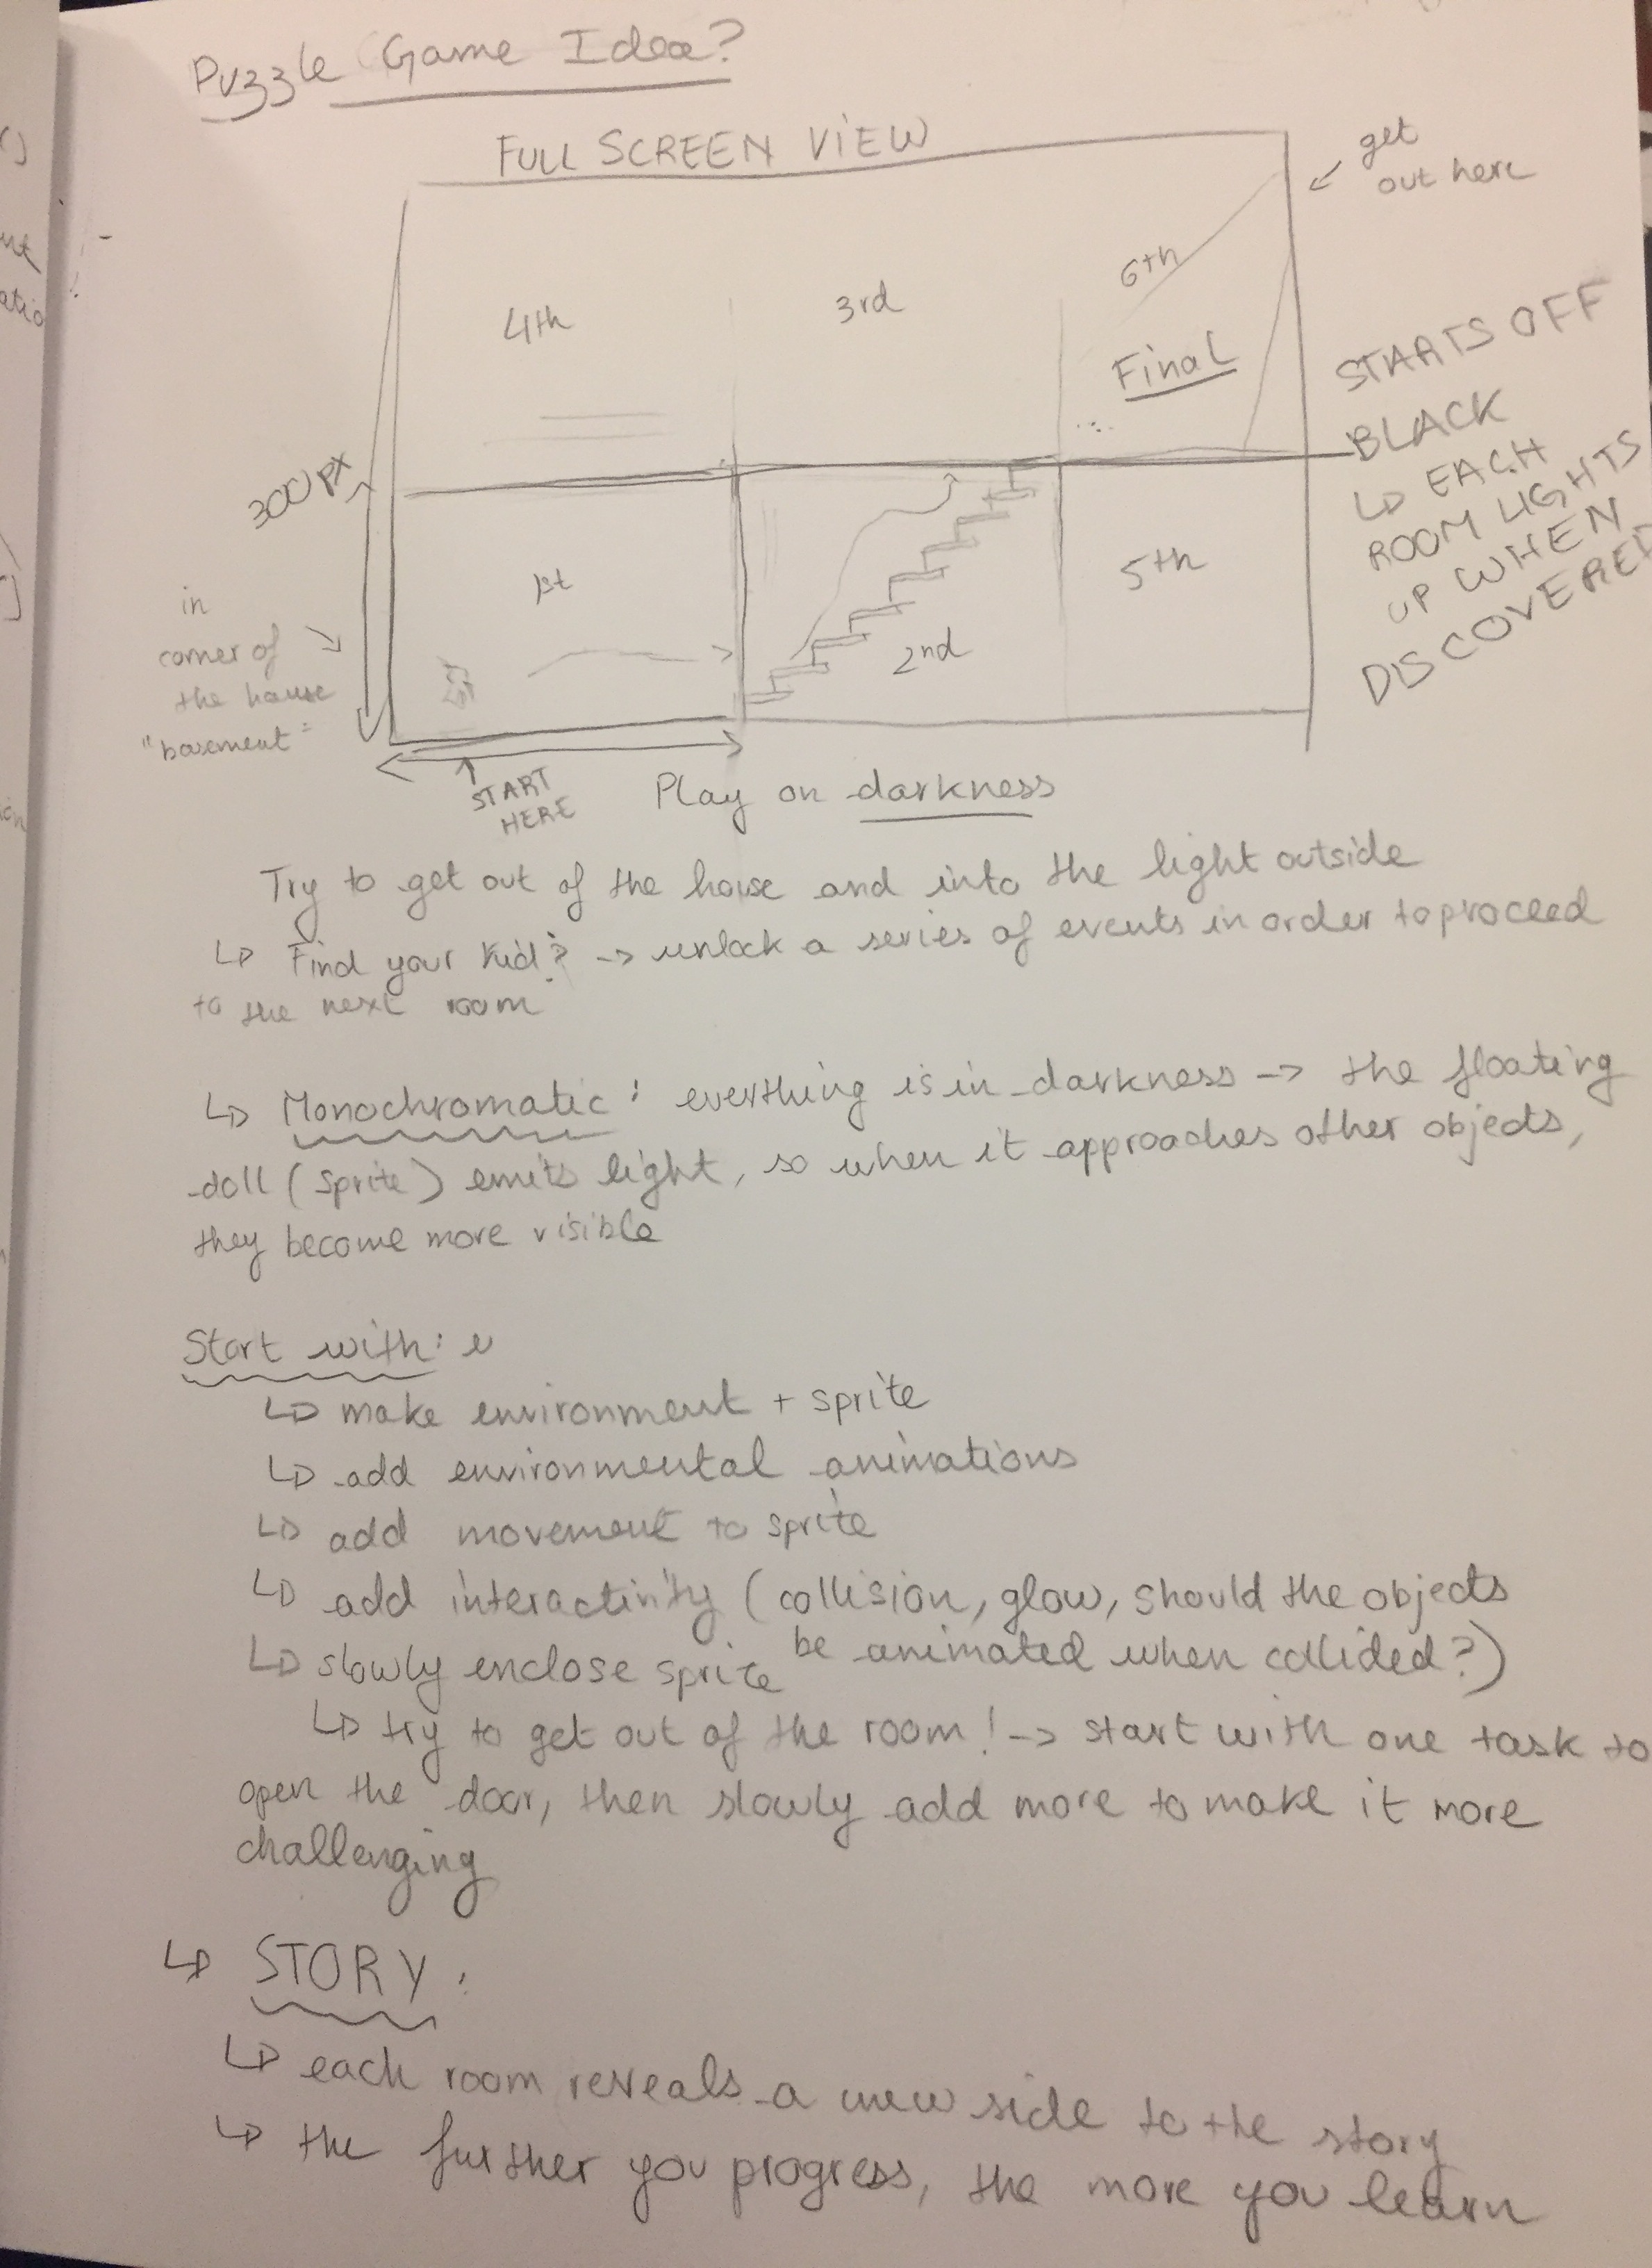 Puzzle Game Idea?
FULL SCREEN VIEW
get
out here
4th
3rd
6th
Final
300 PX
1st
2nd
5th
STARTS OFF
BLACK
↳ EACH
ROOM LIGHTS
UP WHEN
DISCOVERED
in
corner of
the house
"basement"
START
HERE
Play on darkness
Try to get out of the house and into the light outside
↳ Find your kid? -> unlock a series of events in order to proceed
to the next room
↳ Monochromatic: everthing is in darkness -> the floating
doll (sprite) emits light, so when it approaches other objects,
they become more visible
Start with:
↳ make environment + sprite
↳ add environmental animations
↳ add movement to sprite
↳ add interactivity (collision, glow, should the objects
be animated when collided?)
↳ slowly enclose sprite
↳ try to get out of the room! -> start with one task to
open the door, then slowly add more to make it more
challenging
↳ STORY:
↳ each room reveals a new side to the story
↳ the further you progress, the more you learn